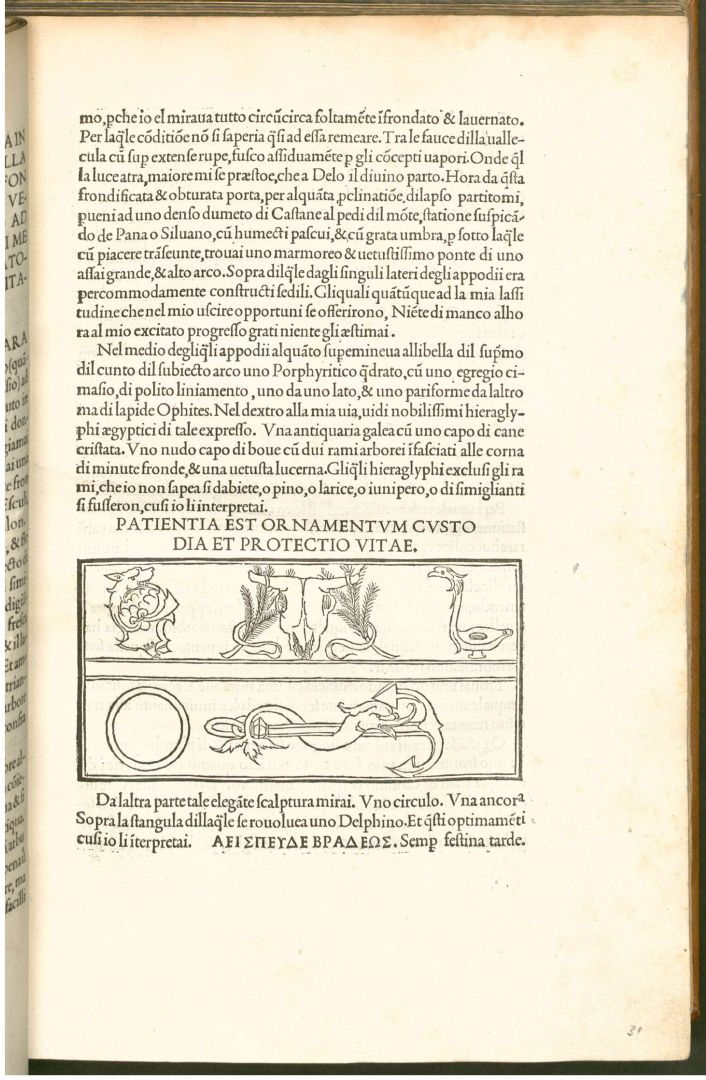 mo,pche io el miraua tutto circũcirca foltamẽte ĩfrondato & lauernato.
Per laq̃le cõditiõe nõ si saperia q̃si ad essa remeare. Tra le fauce dilla ualle-
cula cũ sup extense rupe, fusco assiduamẽte p gli cõcepti uapori. Onde q̃l
la luce atra, maiore mi se præstoe, che a Delo il diuino parto. Hora da q̃sta
frondificata & obturata porta, per alquãta, pclinatiõe, dilapso partitomi,
pueni ad uno denso dumeto di Castane al pedi dil mõte, statione suspicã-
do de Pana o Siluano, cũ humecti pascui, &, cũ grata umbra, p sotto laq̃le
cũ piacere trãseunte, trouai uno marmoreo & uetustissimo ponte di uno
assai grande, & alto arco. Sopra dilq̃le dagli singuli lateri degli appodii era
percommodamente constructi sedili. Gliquali quãtũque ad la mia lassi
tudine che nel mio uscire opportuni se offerirono, Niẽte di manco alho
ra al mio excitato progresso grati niente gli æstimai.
Nel medio degliq̃li appodii alquãto supemineua allibella dil sup̃mo
dil cunto dil subiecto arco uno Porphyritico q̃drato, cũ uno egregio ci-
masio, di polito liniamento, uno da uno lato, & uno pariforme da laltro
ma di lapide Ophites. Nel dextro alla mia uia, uidi nobilissimi hieragly-
phi ægyptici di tale expresso. Vna antiquaria galea cũ uno capo di cane
cristata. Vno nudo capo di boue cũ dui rami arborei ĩfasciati alle corna
di minute fronde, & una uetusta lucerna. Gliq̃li hieraglyphi exclusi gli ra
mi, che io non sapea si dabiete, o pino, o larice, o iunipero, o di simiglianti
si fusseron, cusi io li interpretai.
PATIENTIA EST ORNAMENTVM CVSTO
DIA ET PROTECTIO VITAE.
Da laltra parte tale elegãte scalptura mirai. Vno circulo. Vna ancora
Sopra la stangula dillaq̃le se rouoluea uno Delphino. Et q̃sti optimamẽti
cusi io li ĩterpretai. ΑΕΙ ΣΠΕΥΔΕ ΒΡΑΔΕΩΣ. Semp festina tarde.
A IN
LLA
FON
VE-
AD
I ME
ATO-
ITA-
ARA